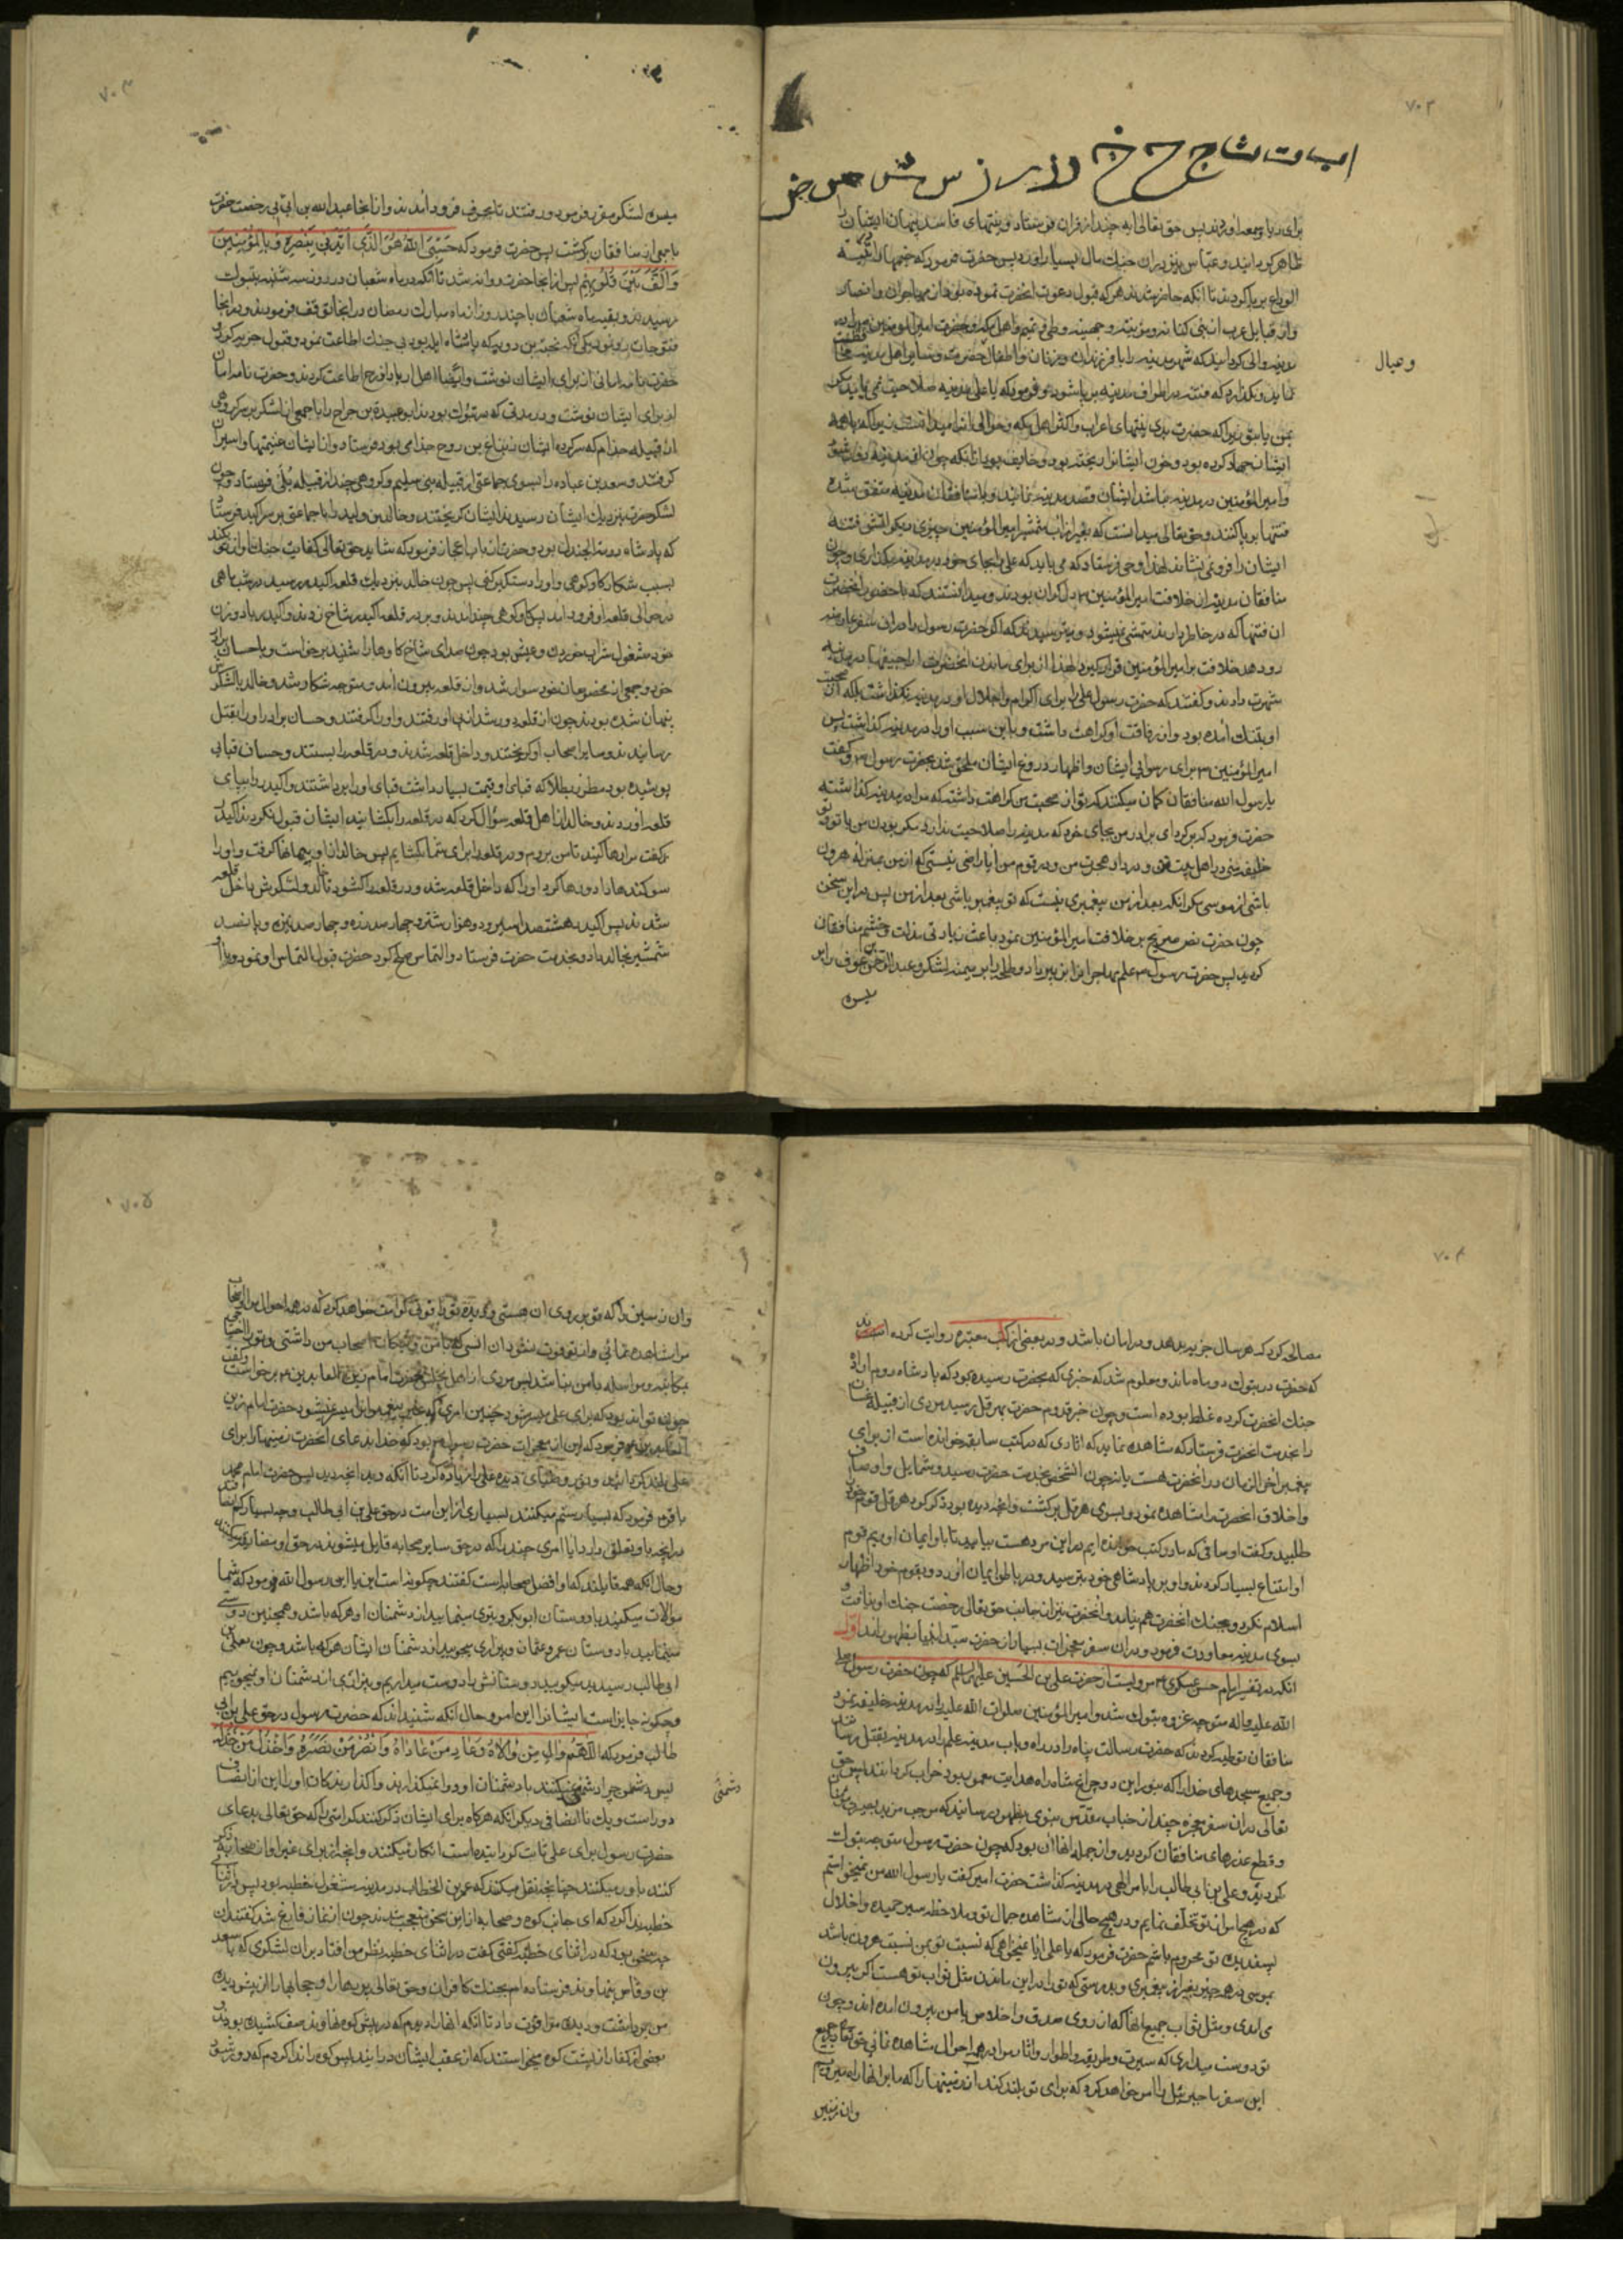 ۷۰۲
ا ب ت ث ج ح خ د ذ ر ز س ش ص ض
برای ریا و سمعه آوردند پس حق تعالی ایه چند از قران فرستاد و نیتهای فاسد پنهان ایشان را
ظاهر گردانید و عباس نیز دران جنك مال بسیار اورد پس حضرت فرمود که خیمها در ثنیة
الوداع برپا کردند تا آنکه حاضر شدند هر که قبول دعوت انحضرت نموده بود از مهاجران و انصار
واز قبایل عرب از بنی کنانه و مزینه و جهینه و طی و تمیم و اهل مکه و حضرت امیرالمؤمنین را در
مدینه والی گردانید که شهر مدینه را با فرزندان و زنان و اطفال حضرت و سایر اهل مدینه محافظت
و عیال
نماید و نگذارد که فتنه در اطراف مدینه برپا شود و فرمود که یا علی مدینه صلاحیت نمی یابد مگر
بمن یا بتو زیرا که حضرت بدی نیتهای اعراب و اکثر اهل مکه و حوالی انرا میدانست زیرا که با همه
ایشان جهاد کرده بود و خون ایشانرا ریخته بود و خایف بود تا آنکه چون از مدینه دور شود
و امیرالمؤمنین در مدینه نباشد ایشان قصد مدینه نمایند و با منافقان مدینه متفق شده
فتنها برپا کنند و حق تعالی میدانست که بغیر از اب شمشیر امیرالمؤمنین چیزی دیگر آتش فتنه
ایشان را فرو نمی نشاند لهذا وحی فرستاد که می باید که علی را بجای خود در مدینه بگذاری و چون
منافقان مدینه از خلافت امیرالمؤمنین ع دل گران بودند و میدانستند که با حضور انحضرت
ان فتنها که در خاطر دارند متمشی نمیشود و میترسیدند که اگر حضرت رسول را دران سفر عارضه
رو دهد خلافت بر امیرالمؤمنین قرار گیرد لهذا از برای ماندن انحضرت اراجیفها در مدینه
شهرت دادند و گفتند که حضرت رسول علی را برای اکرام و اجلال او در مدینه نگذاشت بلکه از صحبت
او بتنك آمده بود و از رفاقت او کراهت داشت و باین سبب او را در مدینه گذاشت پس
امیرالمؤمنین ع برای رسوایی ایشان و اظهار دروغ ایشان ملحق شد بحضرت رسول ص و گفت
یا رسول الله منافقان گمان میکنند که تو از صحبت من کراهت داشته که مرا در مدینه گذاشته
حضرت فرمود که برگرد ای برادر من بجای خود که مدینه را صلاحیت ندارد مگر بودن من یا تو و تو
خلیفه منی در اهل بیت من و در دار هجرت من و در قوم من آیا راضی نیستی که از من بمنزله هرون
باشی از موسی مگر انکه بعد از من پیغمبری نیست که تو پیغمبر باشی بعد از من پس در این سخن
چون حضرت نص صریح بر خلافت امیرالمؤمنین نمود باعث زیادتی مذلت و خشم منافقان
گردید پس حضرت رسول ص علم مهاجران را بزبیر داد و طلحه را بر میمنه لشکر و عبدالرحمن بن عوف را بر
میسره
۷۰۳
میسره لشکر مقرر فرمود و رفتند تا بجرف فرود آمدند و از انجا عبدالله بن ابی بی رخصت حضرت
با جمعی از منافقان برگشت پس حضرت فرمود که حَسْبِیَ اللهُ هُوَ الَّذی اَیَّدَنی بِنَصْرِهِ وَ بِالْمُؤْمِنینَ
وَ اَلَّفَ بَیْنَ قُلُوبِهِمْ پس از انجا حضرت روانه شد تا آنکه در ماه شعبان در روز سه شنبه بتبوك
رسیدند و بقیه ماه شعبان با چند روز از ماه مبارك رمضان در انجا توقف فرمودند و در انجا
فتوحات رو نمود یکی آنکه نحبة بن روبه که پادشاه ایله بود بی جنك اطاعت نمود و قبول جزیه کرد و
حضرت نامه امانی از برای ایشان نوشت و ایضا اهل اربا و اذرح اطاعت کردند و حضرت نامه امان
از برای ایشان نوشت و در مدتی که در تبوك بودند ابو عبیدة بن جراح را با جمعی از لشکر بر سر گروهی
از قبیله جذام که سرکرده ایشان زنباع بن روح جذامی بود فرستاد و از ایشان غنیمتها و اسیران
گرفتند و سعد بن عباده را بسوی جماعتی از قبیله بنی سلیم و گروهی چند از قبیله بُلَی فرستاد و چون
لشکر حضرت بنزدیك ایشان رسیدند ایشان گریختند و خالد بن ولید را با جماعتی بر سر اکیدر فرستاد
که پادشاه دومة الجندل بود و حضرت از باب اعجاز فرمود که شاید حق تعالی کفایت جنك تو از او بکند
بسبب شکار گاو کوهی و او را دستگیر کنی پس چون خالد بنزدیك قلعه اکیدر رسید در شب ماهی
در حوالی قلعه او فرود آمد پس گاو کوهی چند آمدند و بر در قلعه اکیدر شاخ زدند و اکیدر با دو زن
خود مشغول شراب خوردن و عیش بود چون صدای شاخ گاوها را شنید برخواست و با حسان برادر
خود و جمعی از مخصوصان خود سوار شد و از قلعه بیرون آمد و متوجه شکار شد و خالد با لشکر
پنهان شده بودند چون از قلعه دور شد از پی او رفتند و او را گرفتند و حسان برادر او را بقتل
رسانیدند و سایر اصحاب او گریختند و داخل قلعه شدند و در قلعه را بستند و حسان قبایی
پوشیده بود مطرز بطلا که قبای او قیمت بسیار داشت قبای او را برداشتند و اکیدر را بپای
قلعه آوردند و خالد از اهل قلعه سؤال کرد که در قلعه را بگشایند ایشان قبول نکردند اکیدر
گفت مرا رها کنید تا من بروم و در قلعه را برای شما بگشایم پس خالد از او پیمانها گرفت و او را
سوگندها داد و رها کرد او را که داخل قلعه شد و در قلعه را گشود تا خالد و لشکرش داخل قلعه
شدند پس اکیدر هشتصد اسیر و دو هزار شتر و چهارصد زره و چهارصد نیزه و پانصد
شمشیر بخالد داد و بخدمت حضرت فرستاد و التماس صلح کرد حضرت قبول التماس او نمود و با او
۷۰۴
مصالحه کرد که هر سال جزیه بدهد و در امان باشد و در بعضی از کتب معتبره روایت کرده اند
که حضرت در تبوك دو ماه ماند و معلوم شد که خبری که بحضرت رسیده بود که پادشاه روم اراده
جنك انحضرت کرده غلط بوده است و چون خبر قدوم حضرت بهرقل رسید مردی از قبیله غسان
را بخدمت انحضرت فرستاد که مشاهده نماید که اثاری که در کتب سابقه خوانده است از برای
پیغمبر آخر الزمان در انحضرت هست یا نه چون انشخص بخدمت حضرت رسید و شمایل و اوصاف
و اخلاق انحضرت را مشاهده نمود و بسوی هرقل برگشت و انچه دیده بود ذکر کرد هرقل قوم خود
طلبید و گفت اوصافی که ما در کتب خوانده ایم در این مرد هست بیایید تا باو ایمان اوریم قوم
او امتناع بسیار کردند و او بر پادشاهی خود بترسید و در باطن ایمان اورد و بقوم خود اظهار
اسلام نکرد و بجنك انحضرت هم نیامد و انحضرت نیز از جانب حق تعالی رخصت جنك او نیافت و
بسوی مدینه معاودت فرمود و دران سفر معجزات بسیار از حضرت سید انبیا بظهور آمد اول
انکه در تفسیر امام حسن عسکری ع مرویست از حضرت علی بن الحسین علیهما السلم که چون حضرت رسول صلی
الله علیه و اله متوجه غزوه تبوك شد و امیرالمؤمنین صلوات الله علیه را در مدینه خلیفه نمود
منافقان توطیه کردند که حضرت رسالت پناه را در راه و باب مدینه علم را در مدینه بقتل رسانند
و جمیع مسجدهای خدا را که بنور این دو چراغ شاه راه هدایت معمور بود خراب گردانند پس حق
تعالی دران سفر معجزه چند از جناب مقدس نبوی بظهور رسانید که موجب مزید بصیرت مؤمنان
و قطع عذرهای منافقان گردید و از جمله انها ان بود که چون حضرت رسول متوجه تبوك
گردید و علی بن ابی طالب را بامر الهی در مدینه گذاشت حضرت امیر گفت یا رسول الله من نمیخواستم
که در هیچ امر از تو تخلف نمایم و در هیچ حالی از مشاهده جمال تو و ملاحظه سیر حمیده و اخلاق
پسندیده تو محروم باشم حضرت فرمود که یا علی ایا نمیخواهی که نسبت تو بمن نسبت هرون باشد
بموسی در هر چیز بغیر از پیغمبری و بدرستی که تو را در این ماندن مثل ثواب تو هست اگر بیرون
می امدی و مثل ثواب جمیع انها که از روی صدق و اخلاص با من بیرون آمده اند و چون
تو دوست میداری که سیرت و طریقه و اطوار و اثار مرا در همه احوال مشاهده نمائی حق تعالی در جمیع
این سفر ما جبرئیل را امر خواهد کرد که برای تو بلند کند ان زمینها را که ما بر انها راه میرویم
وان زمین
۷۰۵
وان زمین را که تو بر روی ان هستی و دیده تو را قوتی کرامت خواهد کرد که در همه احوال مرا و اصحاب
مرا مشاهده نمائی و از تو فوت نشود ان انسی که با من و نیکان اصحاب من داشتی و تو را احتیاج
بمکاتبه و مراسله با من نباشد پس مردی از اهل مجلس حضرت امام زین العابدین ع برخواست و گفت
چگونه تواند بود که برای علی میسر شود چنین امری که بغیر پیغمبرانرا میسر نمیشود حضرت امام زین
العابدین ع فرمود که این از معجزات حضرت رسول ص بود که خدا بدعای انحضرت زمینها را برای
علی بلند گردانید و نور و ضیای دیده علی را زیاده کرد تا آنکه دید انچه دید پس حضرت امام محمد
باقر ع فرمود که بسیار ستم میکنند بسیاری از این امت در حق علی بن ابی طالب و چه بسیار کم انصاف اند
در انچه باو تعلق دارد ایا امری چند را که در حق سایر صحابه قایل میشوند در حق او مضایقه میکنند
و حال آنکه همه قایلند که او افضل صحابه است گفتند چگونه است این یا ابن رسول الله فرمود که شما
موالات میکنید با دوستان ابوبکر و بیزاری مینمایید از دشمنان او هر که باشد و همچنین دوستی
مینمایید با دوستان عمر و عثمان و بیزاری میجویید از دشمنان ایشان هر که باشد و چون بعلی بن
ابی طالب رسید میگویید دوستانش را دوست میداریم و بیزاری از دشمنان او نمیجوییم
و چگونه جایز است ایشانرا این امر و حال آنکه شنیده اند که حضرت رسول در حق علی بن ابی
طالب فرمود که اَللّهُمَّ وَالِ مَنْ وَالاهُ وَ عَادِ مَنْ عَادَاهُ وَ انْصُرْ مَنْ نَصَرَهُ وَ اخْذُلْ مَنْ خَذَلَهُ
پس چرا دشمنی نمیکنند با دشمنان او و وا نمیگذارند واگذارندکان او را این از انصاف
دشمنی
دور است و یك نا انصافی دیگر انکه هرگاه برای ایشان ذکر کنند کرامتی را که حق تعالی بدعای
حضرت رسول برای علی ثابت گردانیده است انکار میکنند و انچه از برای غیر او از صحابه ذکر
کنند باور میکنند چنانچه نقل میکنند که عمر بن الخطاب در مدینه مشغول خطبه بود پس در اثنای
خطبه ندا کرد که ای جانب کوه و صحابه از این سخن متعجب شدند چون از نماز فارغ شد گفتند ان
چه سخن بود که در اثنای خطبه گفتی گفت در اثنای خطبه نظر من افتاد بران لشکری که با سعد
بن وقاص بنهاوند فرستاده ام بجنك کافران و حق تعالی پردها را و حجابها را از پیش دیده
من برداشت و دیده مرا قوت داد تا آنکه انها را دیدم که در پیش کوه نهاوند صف کشیده بودند و
بعضی از کفار از پشت کوه میخواستند که از عقب ایشان درآیند پس کوه را ندا کردم که دور شو